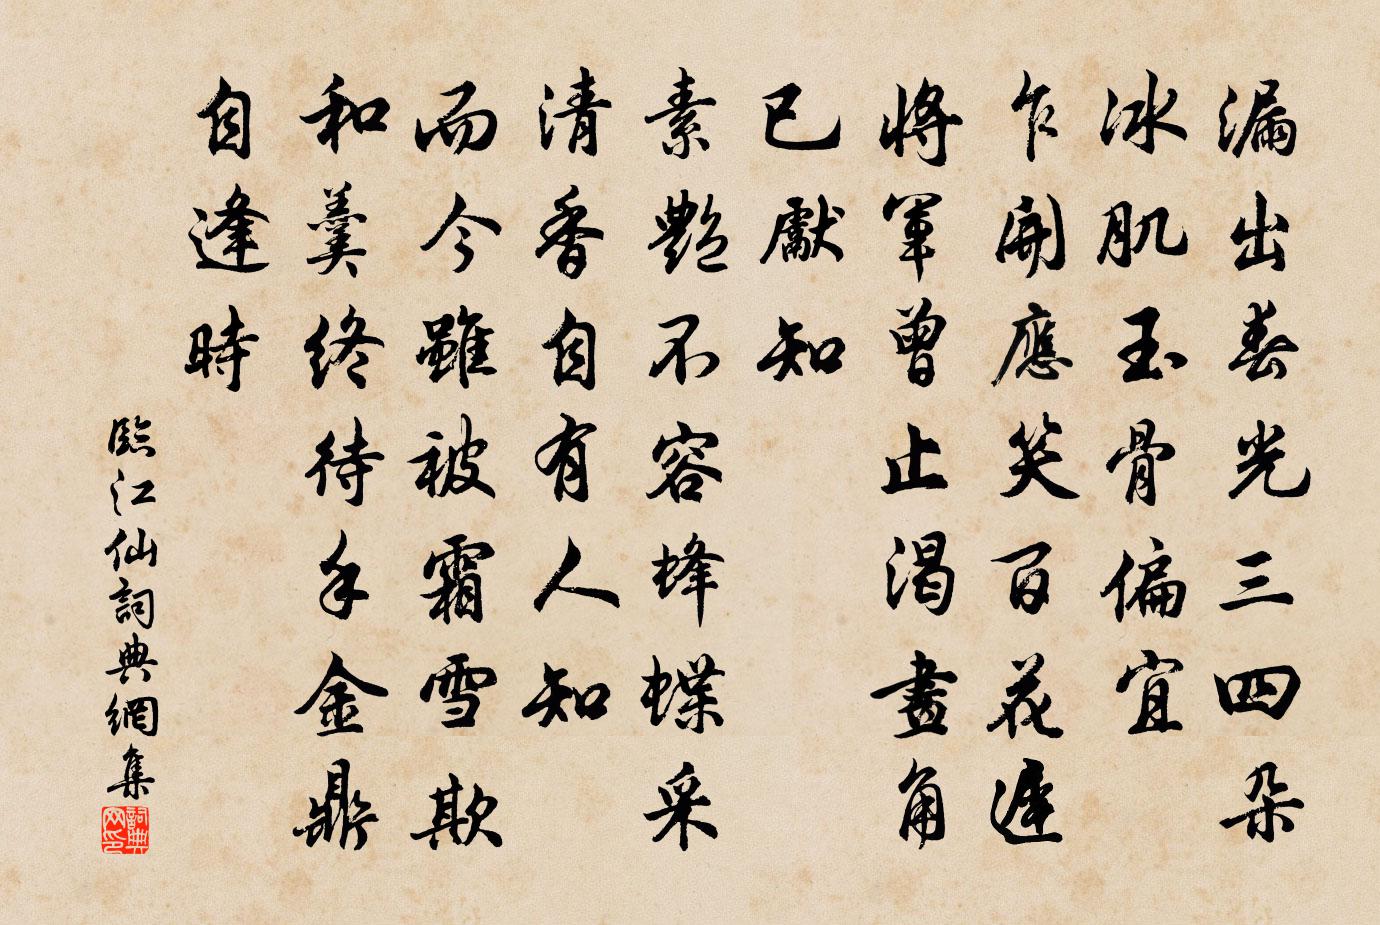 漏出春光三四朵
冰肌玉骨偏宜
乍開應笑百花遲
將軍曾止渴畫角
已獻知
素艷不容蜂蝶采
清香自有人知
而今雖被霜雪欺
和羹終待手金鼎
自逢時
臨江仙詞典網集
詞典网印